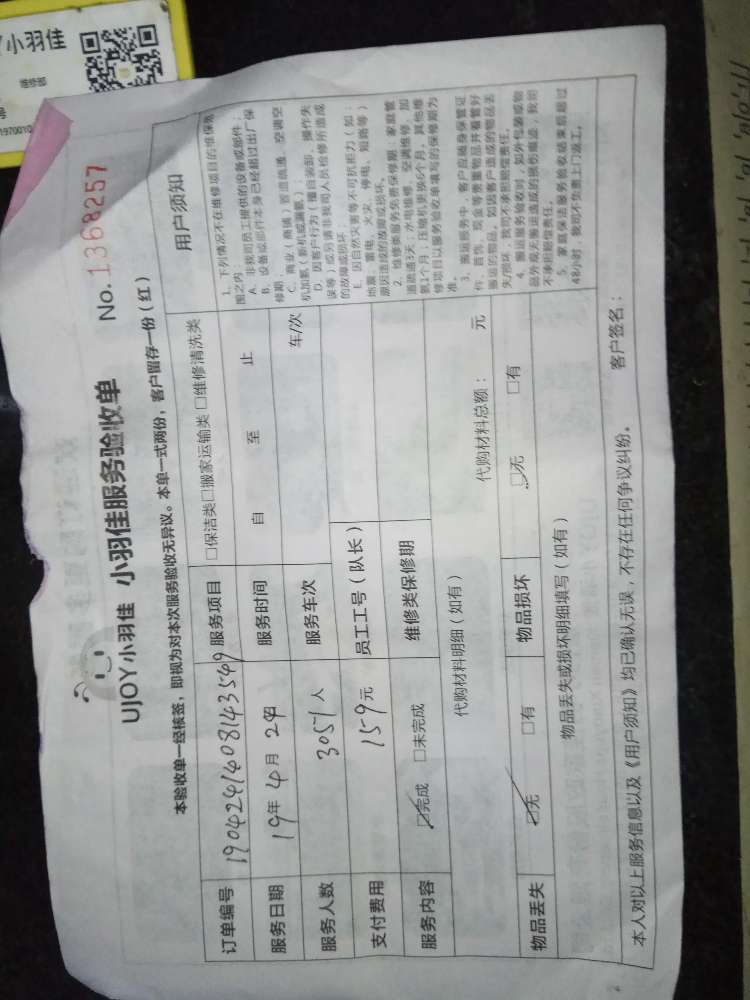 小羽佳
维修部
号
1970010
UJOY小羽佳 小羽佳服务验收单 No.1368257
本验收单一经核签，即视为对本次服务验收无异议。本单一式两份，客户留存一份（红）
订单编号 190424140814354 9 服务项目 □保洁类□搬家运输类□维修清洗类 用户须知
服务日期 19年4月24日 服务时间 自 至 止
服务人数 3051人 服务车次 车/次
支付费用 159元 员工工号（队长）
服务内容 ☑完成 □未完成 维修类保修期
代购材料明细（如有） 代购材料总额： 元
物品丢失 ☑无 □有 物品损坏 ☑无 □有
物品丢失或损坏明细填写（如有）
1. 下列情况不在维修项目的维保范
围之内：
A. 非我司员工提供的设备或部件；
B. 设备或部件本身已经超过出厂保
修期；
C. 商业（商铺）管道疏通、空调空
机加氟（新机或漏氟）；
D. 因客户行为（擅自装卸、操作失
误等）或另请非我司人员检修所造成
的故障或损坏；
E. 因自然灾害等不可抗拒力（如：
地震、雷电、火灾、停电、短路等）
原因造成的故障或损坏。
2. 维修类服务免费保修期：家庭管
道疏通3天；水电维修、空调维修、加
氟1个月；压缩机更换6个月。其他维
修项目以服务验收单填写的保修期为
准。
3. 搬运服务中，客户应随身保管证
件、首饰、现金等贵重物品并看管好
搬运的物品。如因客户造成的物品丢
失/损坏，我司不承担赔偿责任。
4. 搬运服务验收时，如外包装或物
品外观无搬运造成的损伤痕迹，我司
不承担赔偿责任。
5. 家庭保洁服务验收结束后超过
48小时，我司不负责上门返工。
本人对以上服务信息以及《用户须知》均已确认无误，不存在任何争议纠纷。 客户签名：